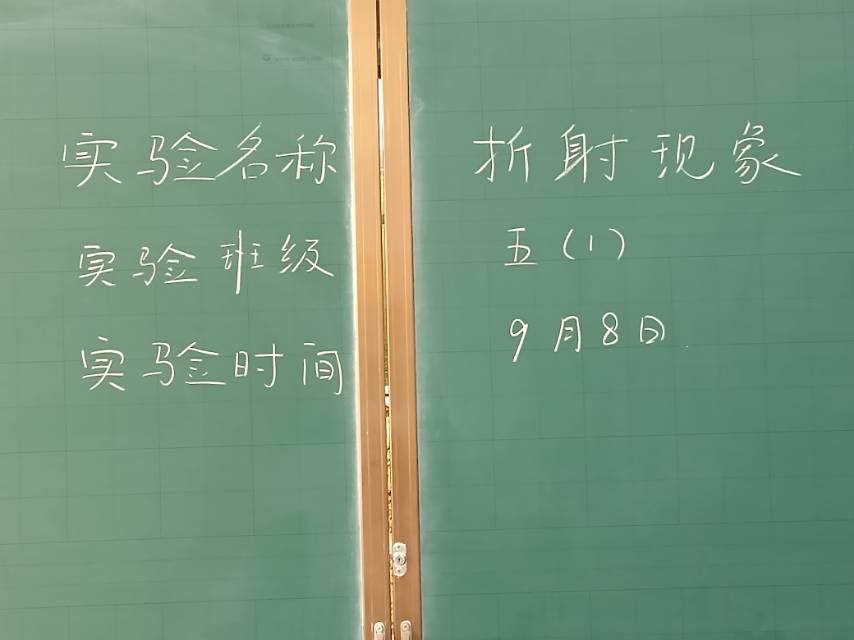 实验名称 折射现象
实验班级 五(1)
实验时间 9月8日